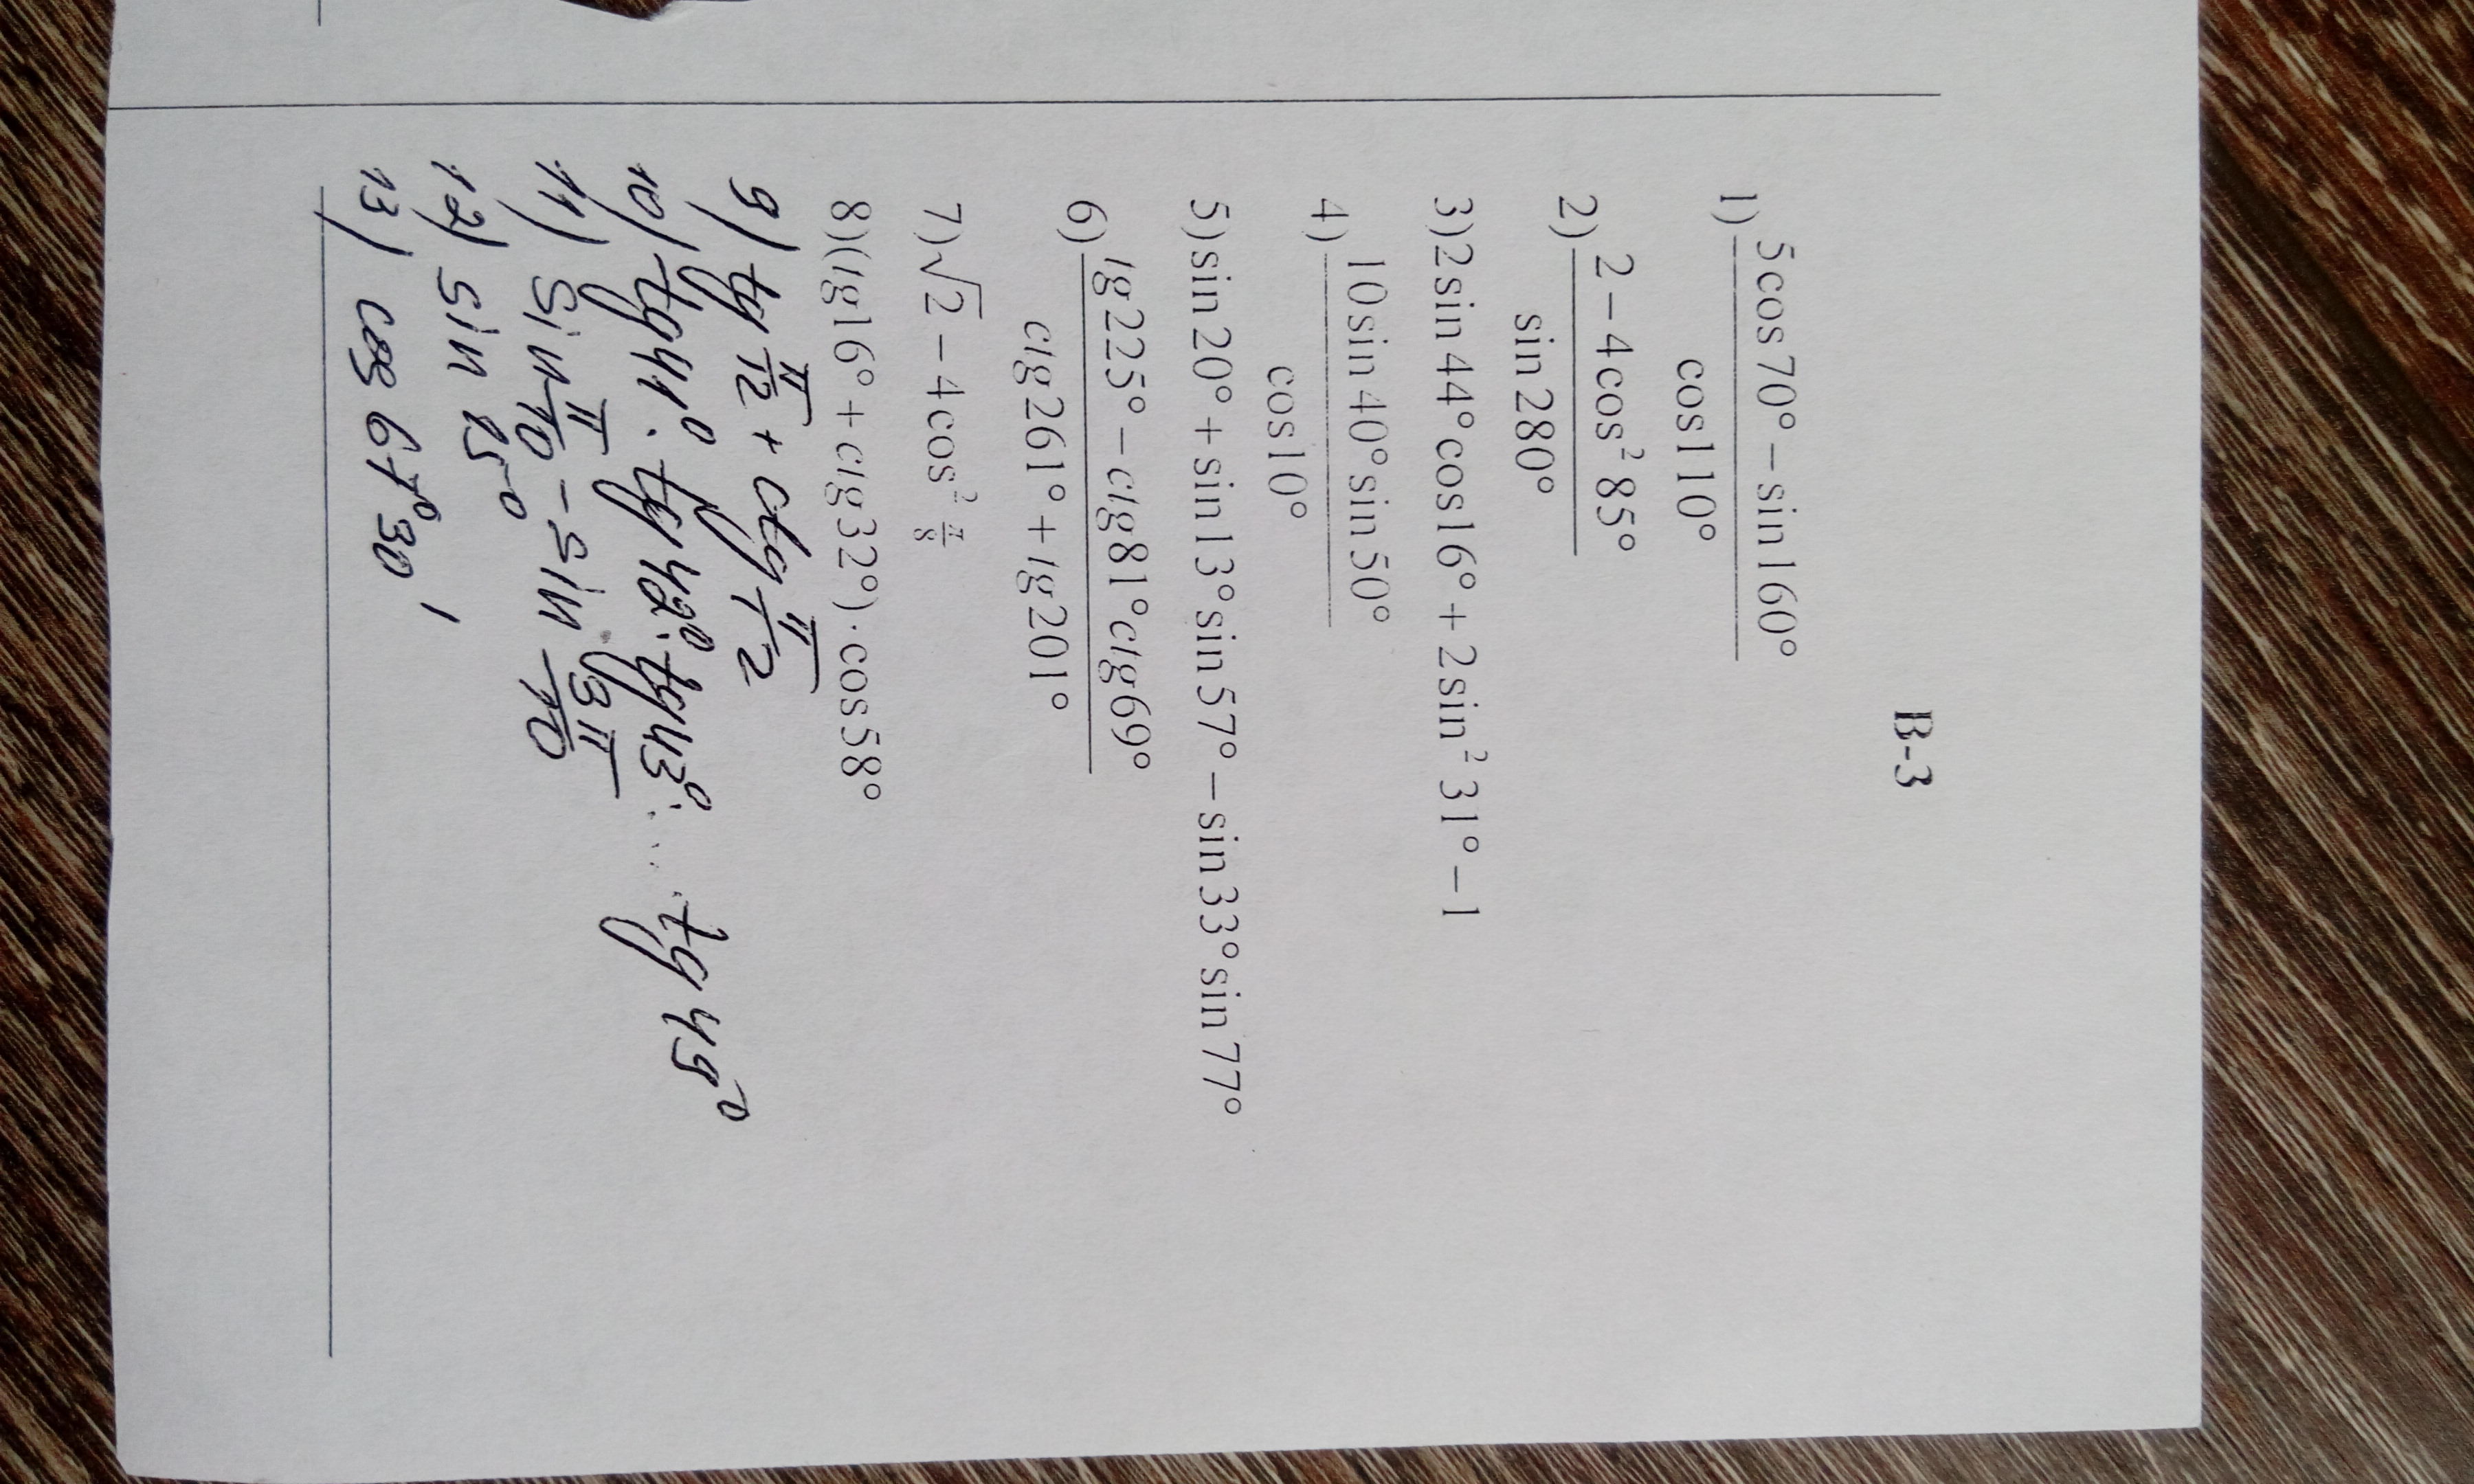 В-3
1) (5cos70° − sin160°) / cos110°
2) (2 − 4cos²85°) / sin280°
3) 2sin44°cos16° + 2sin²31° − 1
4) (10sin40°sin50°) / cos10°
5) sin20° + sin13°sin57° − sin33°sin77°
6) (tg225° − ctg81°ctg69°) / (ctg261° + tg201°)
7) √2 − 4cos² π/8
8) (tg16° + ctg32°)·cos58°
9) tg π/12 + ctg π/12
10) tg41°·tg42°·tg43°·... tg49°
11) sin π/10 − sin 3π/10
12) sin 15°
13) cos 67°30'